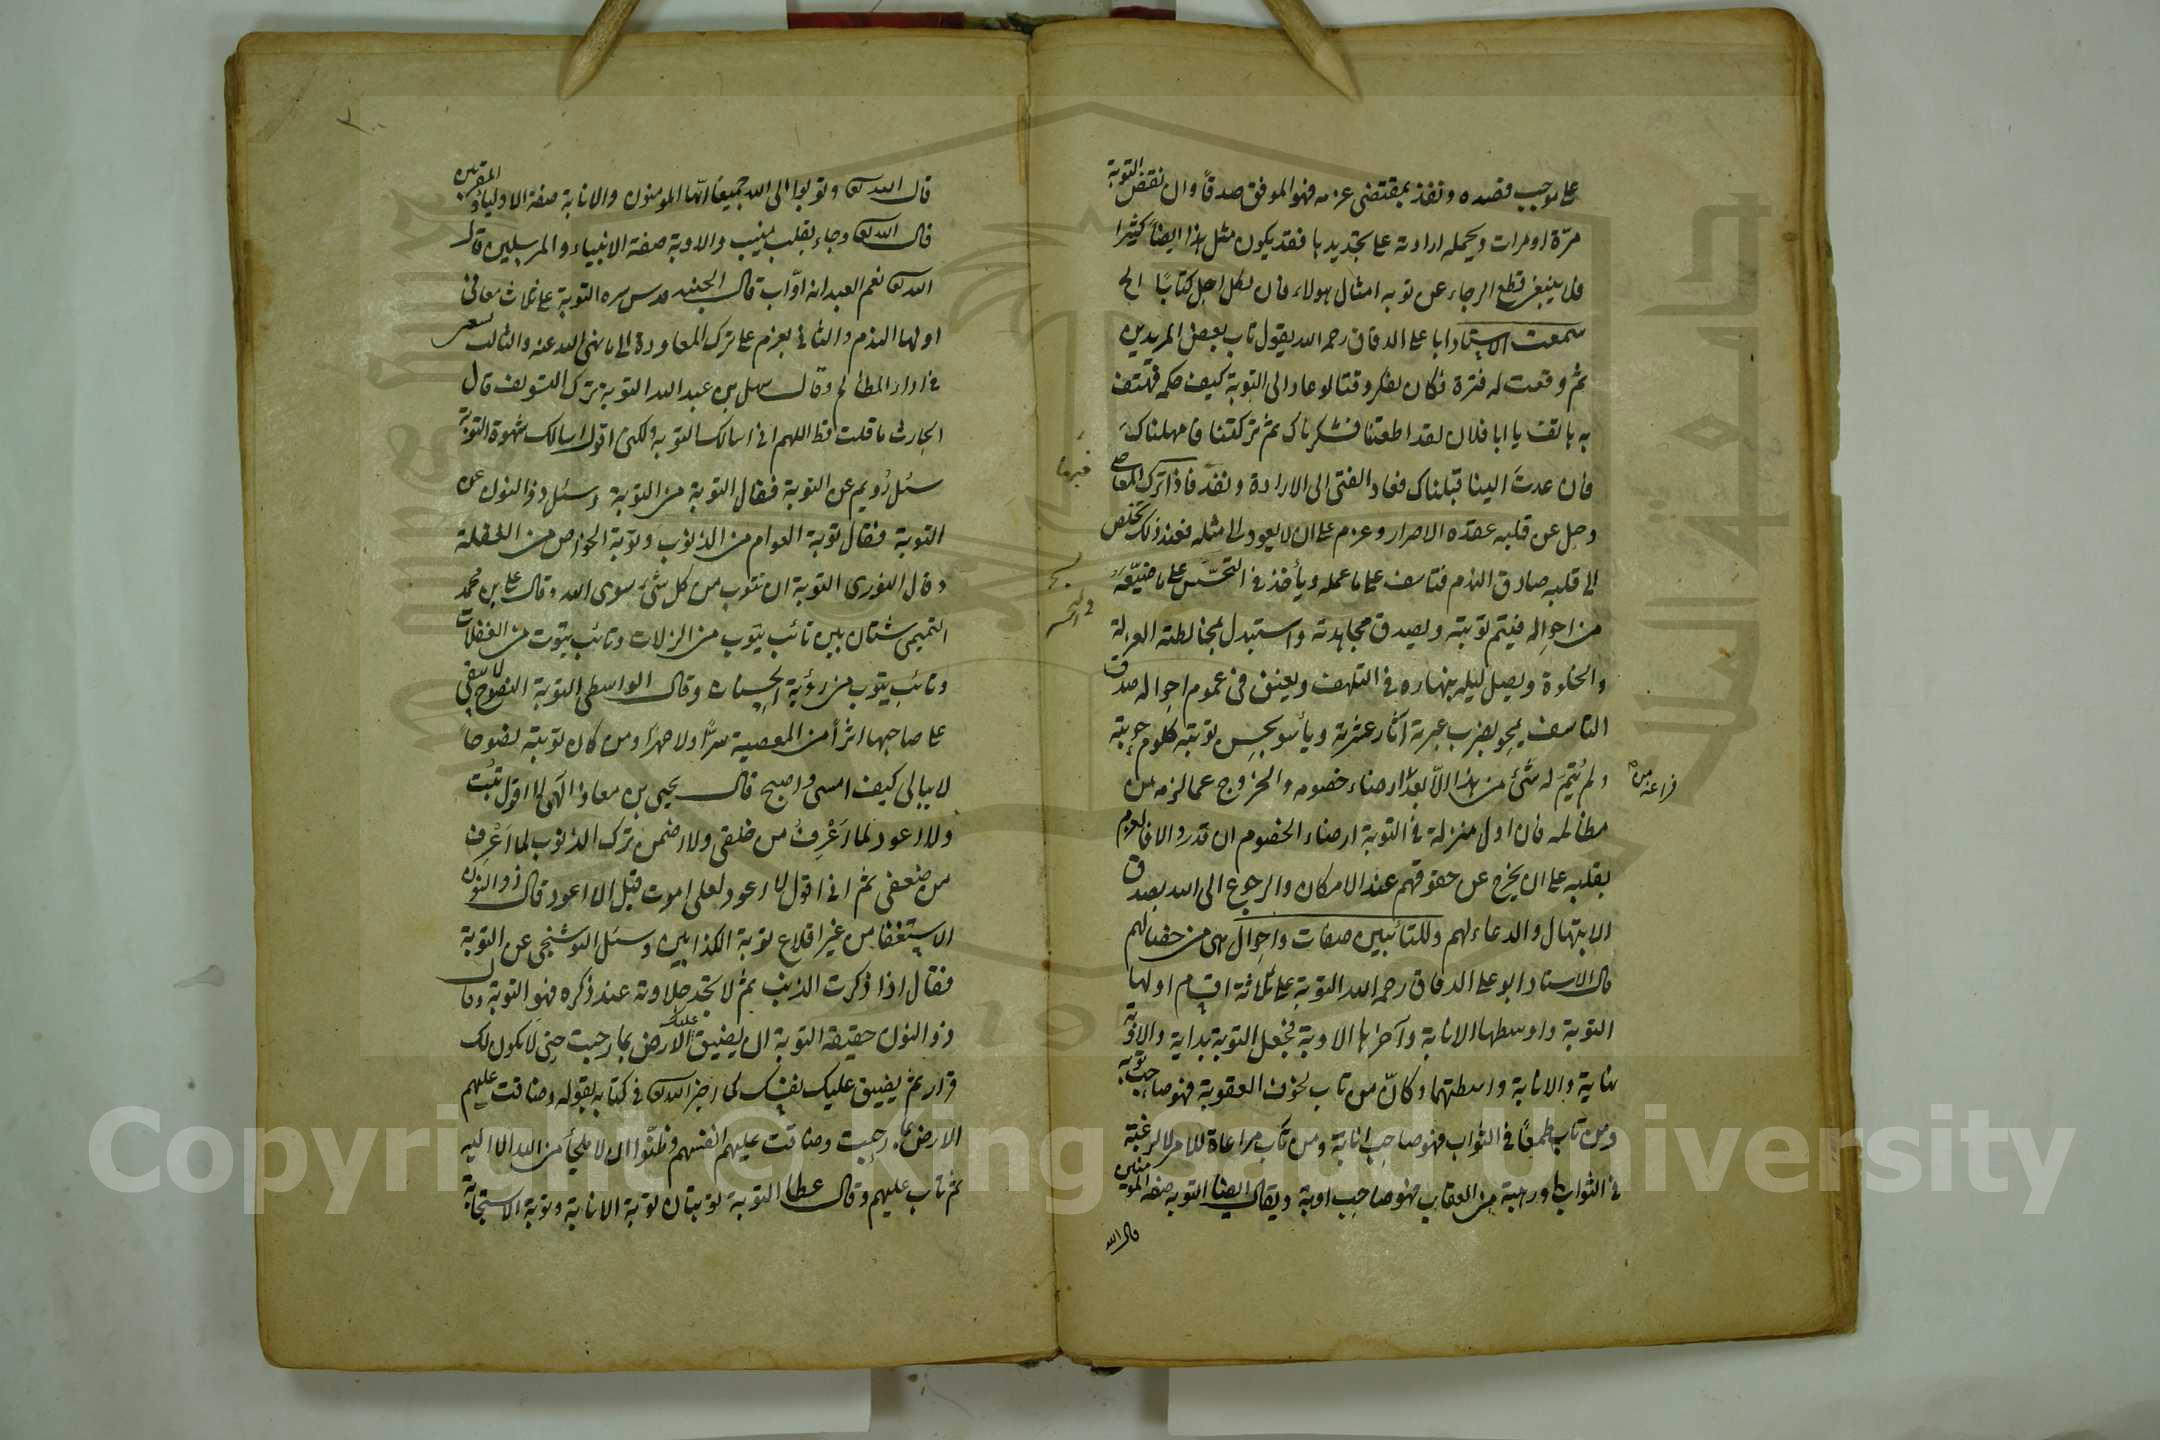 على موجب قصده ونفذ بمقتضى عزمه فهو الموفق صدقاً وان نقض التوبة
مرّة او مرات ويحمله ارادته على تجديدها فقد يكون مثل هذا ايضاً كثيرا
فلا ينبغى قطع الرجاء عن توبه امثال هولاء فان لكل اجل كتابًا الخ
سمعت الاستاد ابا على الدقاق رحمه الله يقول تاب بعض المريدين
ثم وقعت له فترة فكان يفكر وقتا لو عاد الى التوبة كيف حكمه فهتف
به هاتف يا ابا فلان لقد اطعتنا فشكرناك ثم تركتنا فامهلناك
فان عدت الينا قبلناك فعاد الفتى الى الارادة ونفذ فاذا ترك المعاصى
وحل عن قلبه عقدة الاصرار وعزم على ان لا يعود الى مثله فعند ذلك يخلص
الى قلبه صادق الندم فتاسف على ما عمله ويأخذ فى التحسّس على ما ضيّعه
من احواله فيتم توبته ويصدق مجاهدته واستبدل بمخالطته العزلة
والخلوة ويصل ليله بنهاره فى التلهف ويعنق فى عموم احواله صدق
التاسف يمحو بضرب عبرته آثار عثرته ويأسو بحسن توبته كلوم حوبته
ولم يُتِمّ له شئ من هذا الاّ بعد ارضاء خصومه والخروج عما لزمه من
مظالمه فان اول منزلة فى التوبة ارضاء الخصوم ان قدر والا فالعزم
بقلبه على ان يخرج عن حقوقهم عند الامكان والرجوع الى الله بصدق
الابتهال والدعاء لهم وللتائبين صفات واحوال هى من خصالهم
قال الاستاد ابو على الدقاق رحمه الله التوبة على ثلاثة اقسام اولها
التوبة واوسطها الانابة وآخرها الاوبة فجعل التوبة بداية والاوبة
نهاية والانابة واسطتهما وكانّ من تاب لخوف العقوبة فهو صاحب توبه
ومن تاب طمعًا فى الثواب فهو صاحب انابة ومن تاب مراعاة للامر لا لرغبة
فى الثواب او رهبة من العقاب فهو صاحب اوبة ويقال ايضا التوبه صفة المومنين
قال الله
فراغه من
قال الله تع وتوبوا الى الله جميعا ايّها المومنون والانابة صفة الاولياء والمقربين
قال الله تع وجاء بقلب منيب والاوبة صفة الانبياء والمرسلين قال
الله تع نعم العبد انه اوّاب قال الجنيد قدس سره التوبة على ثلاث معانى
اولها الندم والثانى يعزم على ترك المعاودة الى ما نهى الله عنه والثالث يسعى
فى اداء المظالم وقال سهل بن عبد الله التوبة ترك التسويف قال
الحارث ما قلت قط اللهم انى اسالك التوبه ولكنى اقول اسالك شهوة التوبة
سئل رُويم عن التوبة فقال التوبة من التوبة وسئل ذو النون عن
التوبة فقال توبة العوام من الذنوب وتوبة الخواص من الغفلة
وقال النورى التوبة ان تتوب من كل شئ سوى الله وقال على بن محمد
التميمى شتان بين تائب يتوب من الزلات وتائب يتوب من الغفلات
وتائب يتوب من رؤية الحسنات وقال الواسطى التوبة النصوح لا يبقى
على صاحبها اثراً من المعصية سرًّا ولا جهراً ومن كان توبته نصوحاً
لا يبالى كيف امسى واصبح قال يحيى بن معاذ الهى لا اقول تُبتُ
ولا اعود لما اَعْرِفُ من خلقى ولا اضمن ترك الذنوب لما اَعْرِف
من ضعفى ثم انى اقول لا اعود لعلى اموت قبل ان اعود قال ذو النون
الاستغفار من غير اقلاع توبة الكذابين وسئل البوشنجى عن التوبة
فقال اذا ذكرت الذنب ثم لا تجد حلاوته عند ذكره فهو التوبة وقال
ذو النون حقيقة التوبة ان يضيق عليك الارض بما رحبت حتى لا يكون لك
قرار ثم يضيق عليك نفسك كما اخبر الله تع فى كتابه بقوله وضاقت عليهم
الارض بما رحبت وضاقت عليهم انفسهم وظنّوا ان لا ملجأ من الله الا اليه
ثم تاب عليهم وقال عطا التوبة توبتان توبة الانابة وتوبة الاستجابة
Copyright © King Saud University